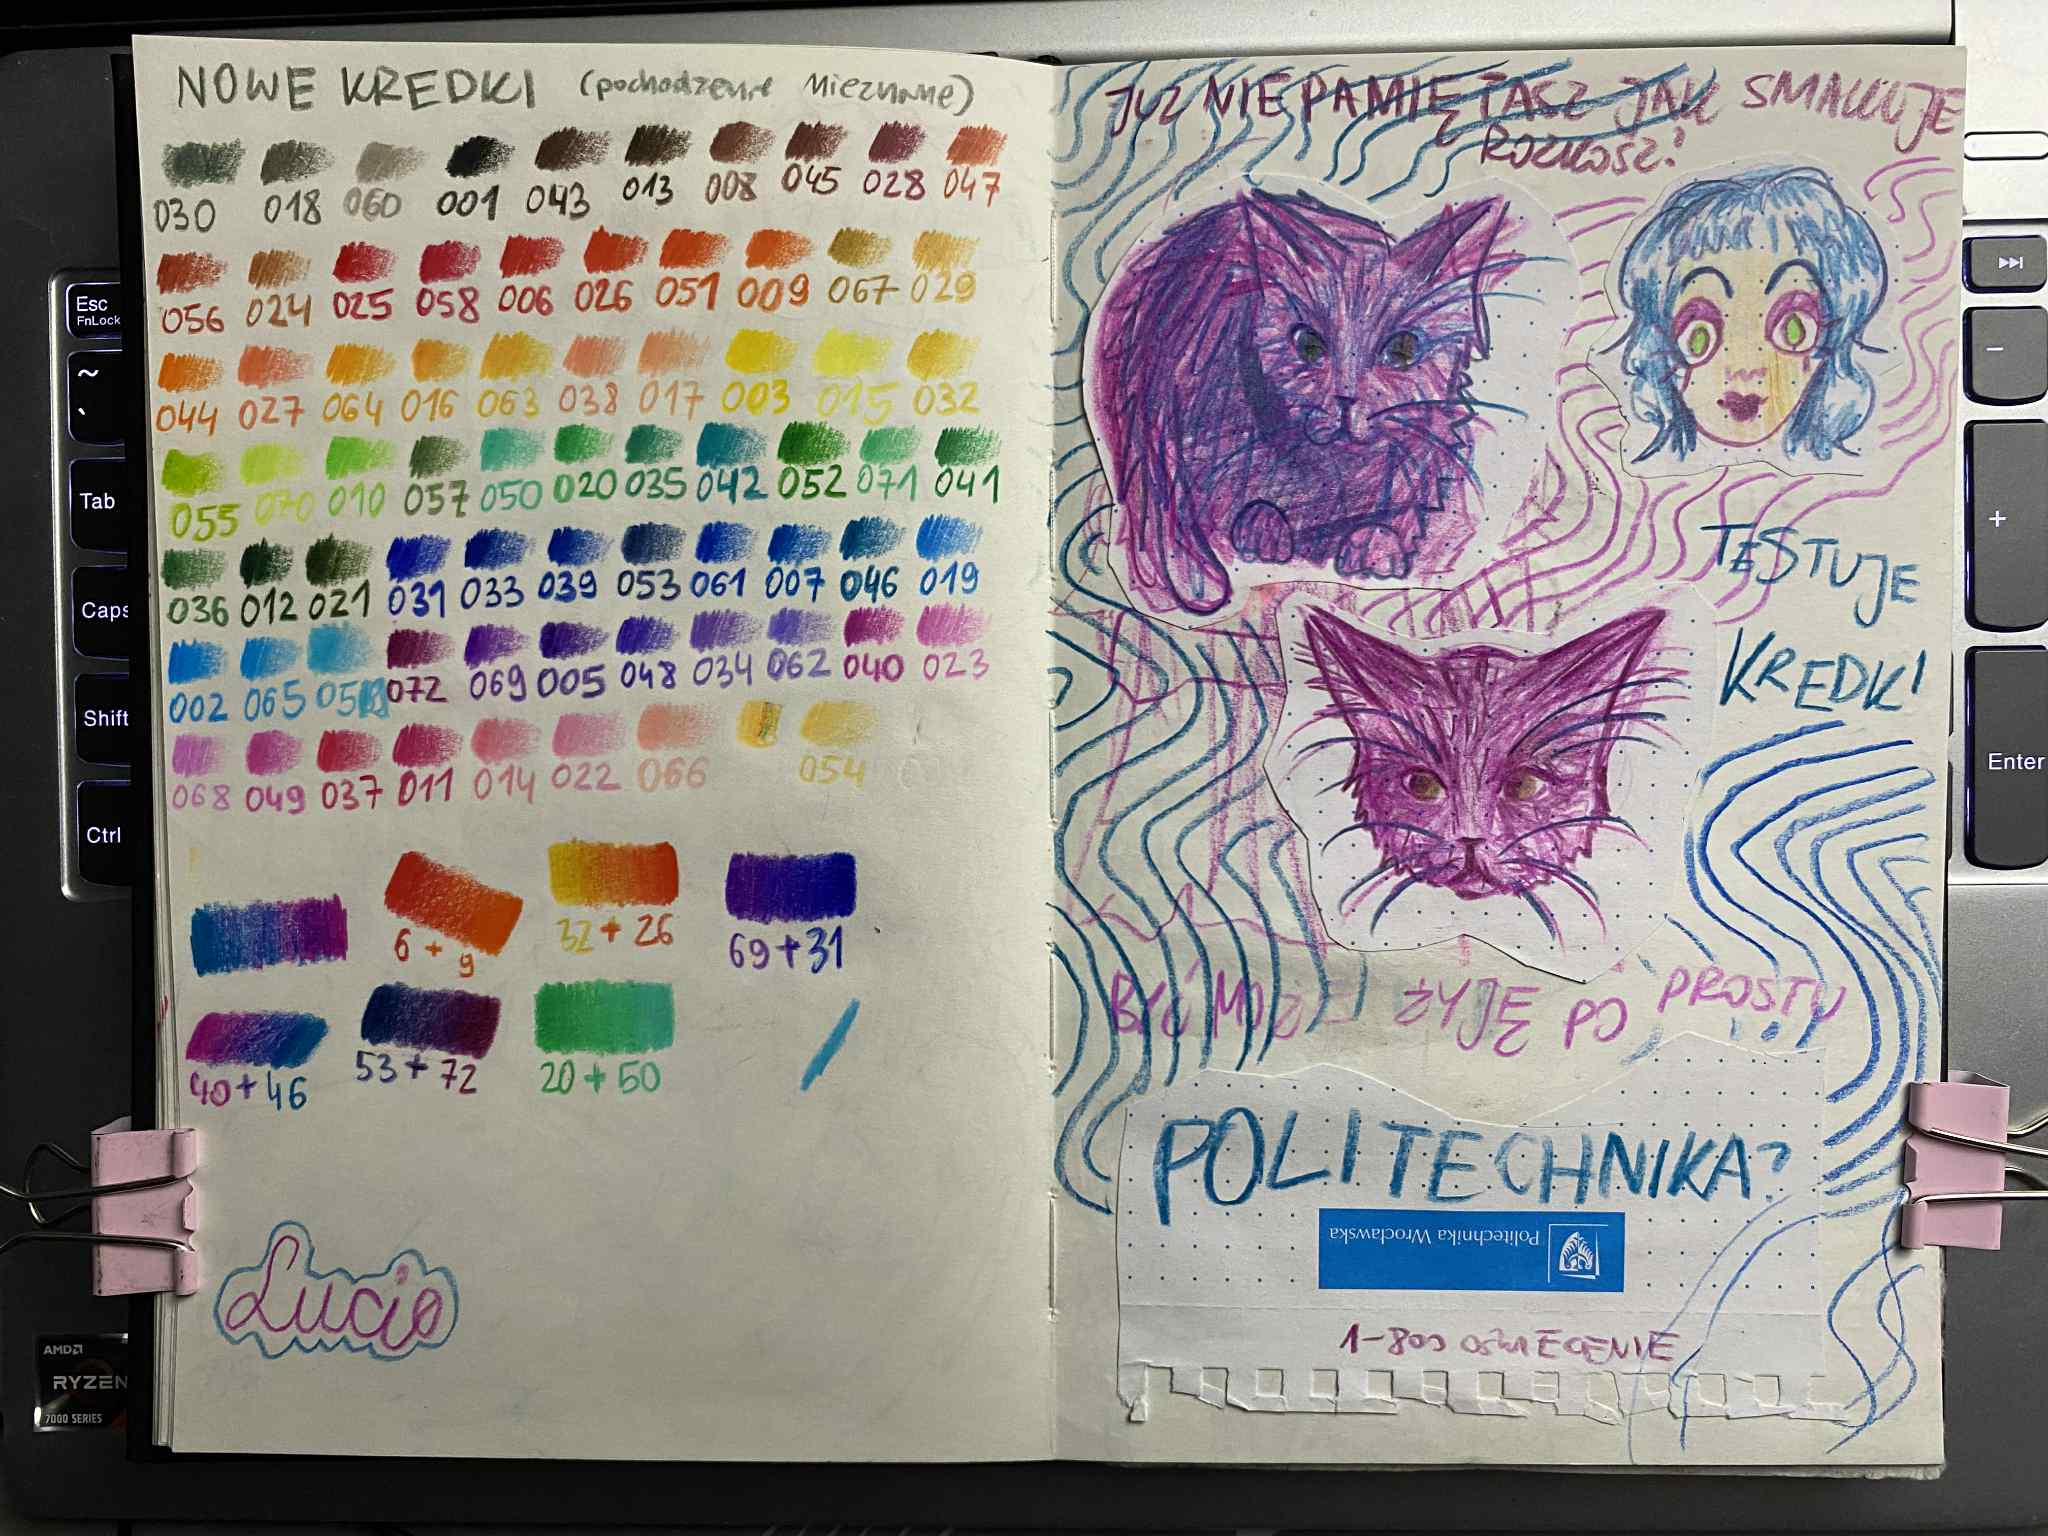 NOWE KREDKI (pochodzenie nieznane)
030 018 060 001 043 013 008 045 028 047
056 024 025 058 006 026 051 009 067 029
044 027 064 016 063 038 017 003 015 032
055 070 010 057 050 020 035 042 052 071 041
036 012 021 031 033 039 053 061 007 046 019
002 065 059 072 069 005 048 034 062 040 023
068 049 037 011 014 022 066 054
6 + 9 32 + 26 69 + 31
40 + 46 53 + 72 20 + 50
Lucja
JUŻ NIE PAMIĘTASZ JAK SMAKUJE
ROZKOSZ?
TESTUJE
KREDKI
BYĆ MOŻE ŻYJĘ PO PROSTU
POLITECHNIKA?
Politechnika Wrocławska
1-800 OŚWIECENIE
Esc
FnLock
~
`
Tab
Caps
Shift
Ctrl
AMD
RYZEN
7000 SERIES
−
+
Enter